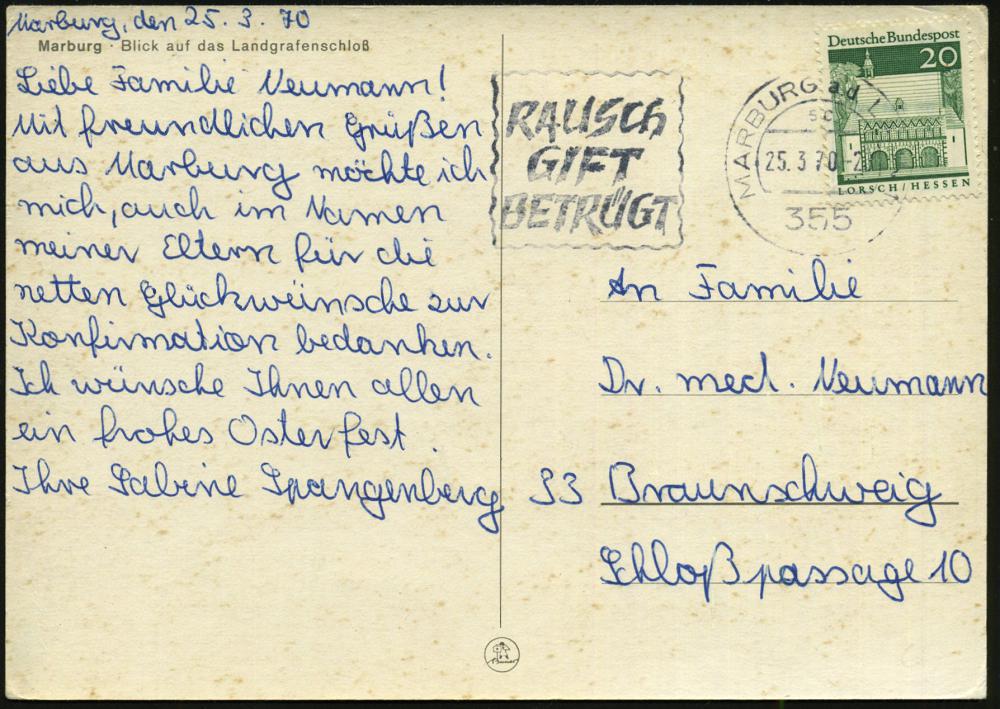 Marburg, den 25. 3. 70
Marburg · Blick auf das Landgrafenschloß
Liebe Familie Neumann!
Mit freundlichen Grüßen
aus Marburg möchte ich
mich, auch im Namen
meiner Eltern für die
netten Glückwünsche zur
Konfirmation bedanken.
Ich wünsche Ihnen allen
ein frohes Osterfest.
Ihre Sabine Spangenberg
RAUSCH
GIFT
BETRÜGT
MARBURG a d L
25.3.70-2
355
Deutsche Bundespost
20
LORSCH/HESSEN
An Familie
Dr. med. Neumann
33 Braunschweig
Schloßpassage 10